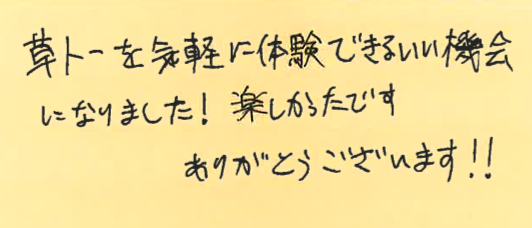 草トーを気軽に体験できるいい機会
になりました！楽しかったです
ありがとうございます!!